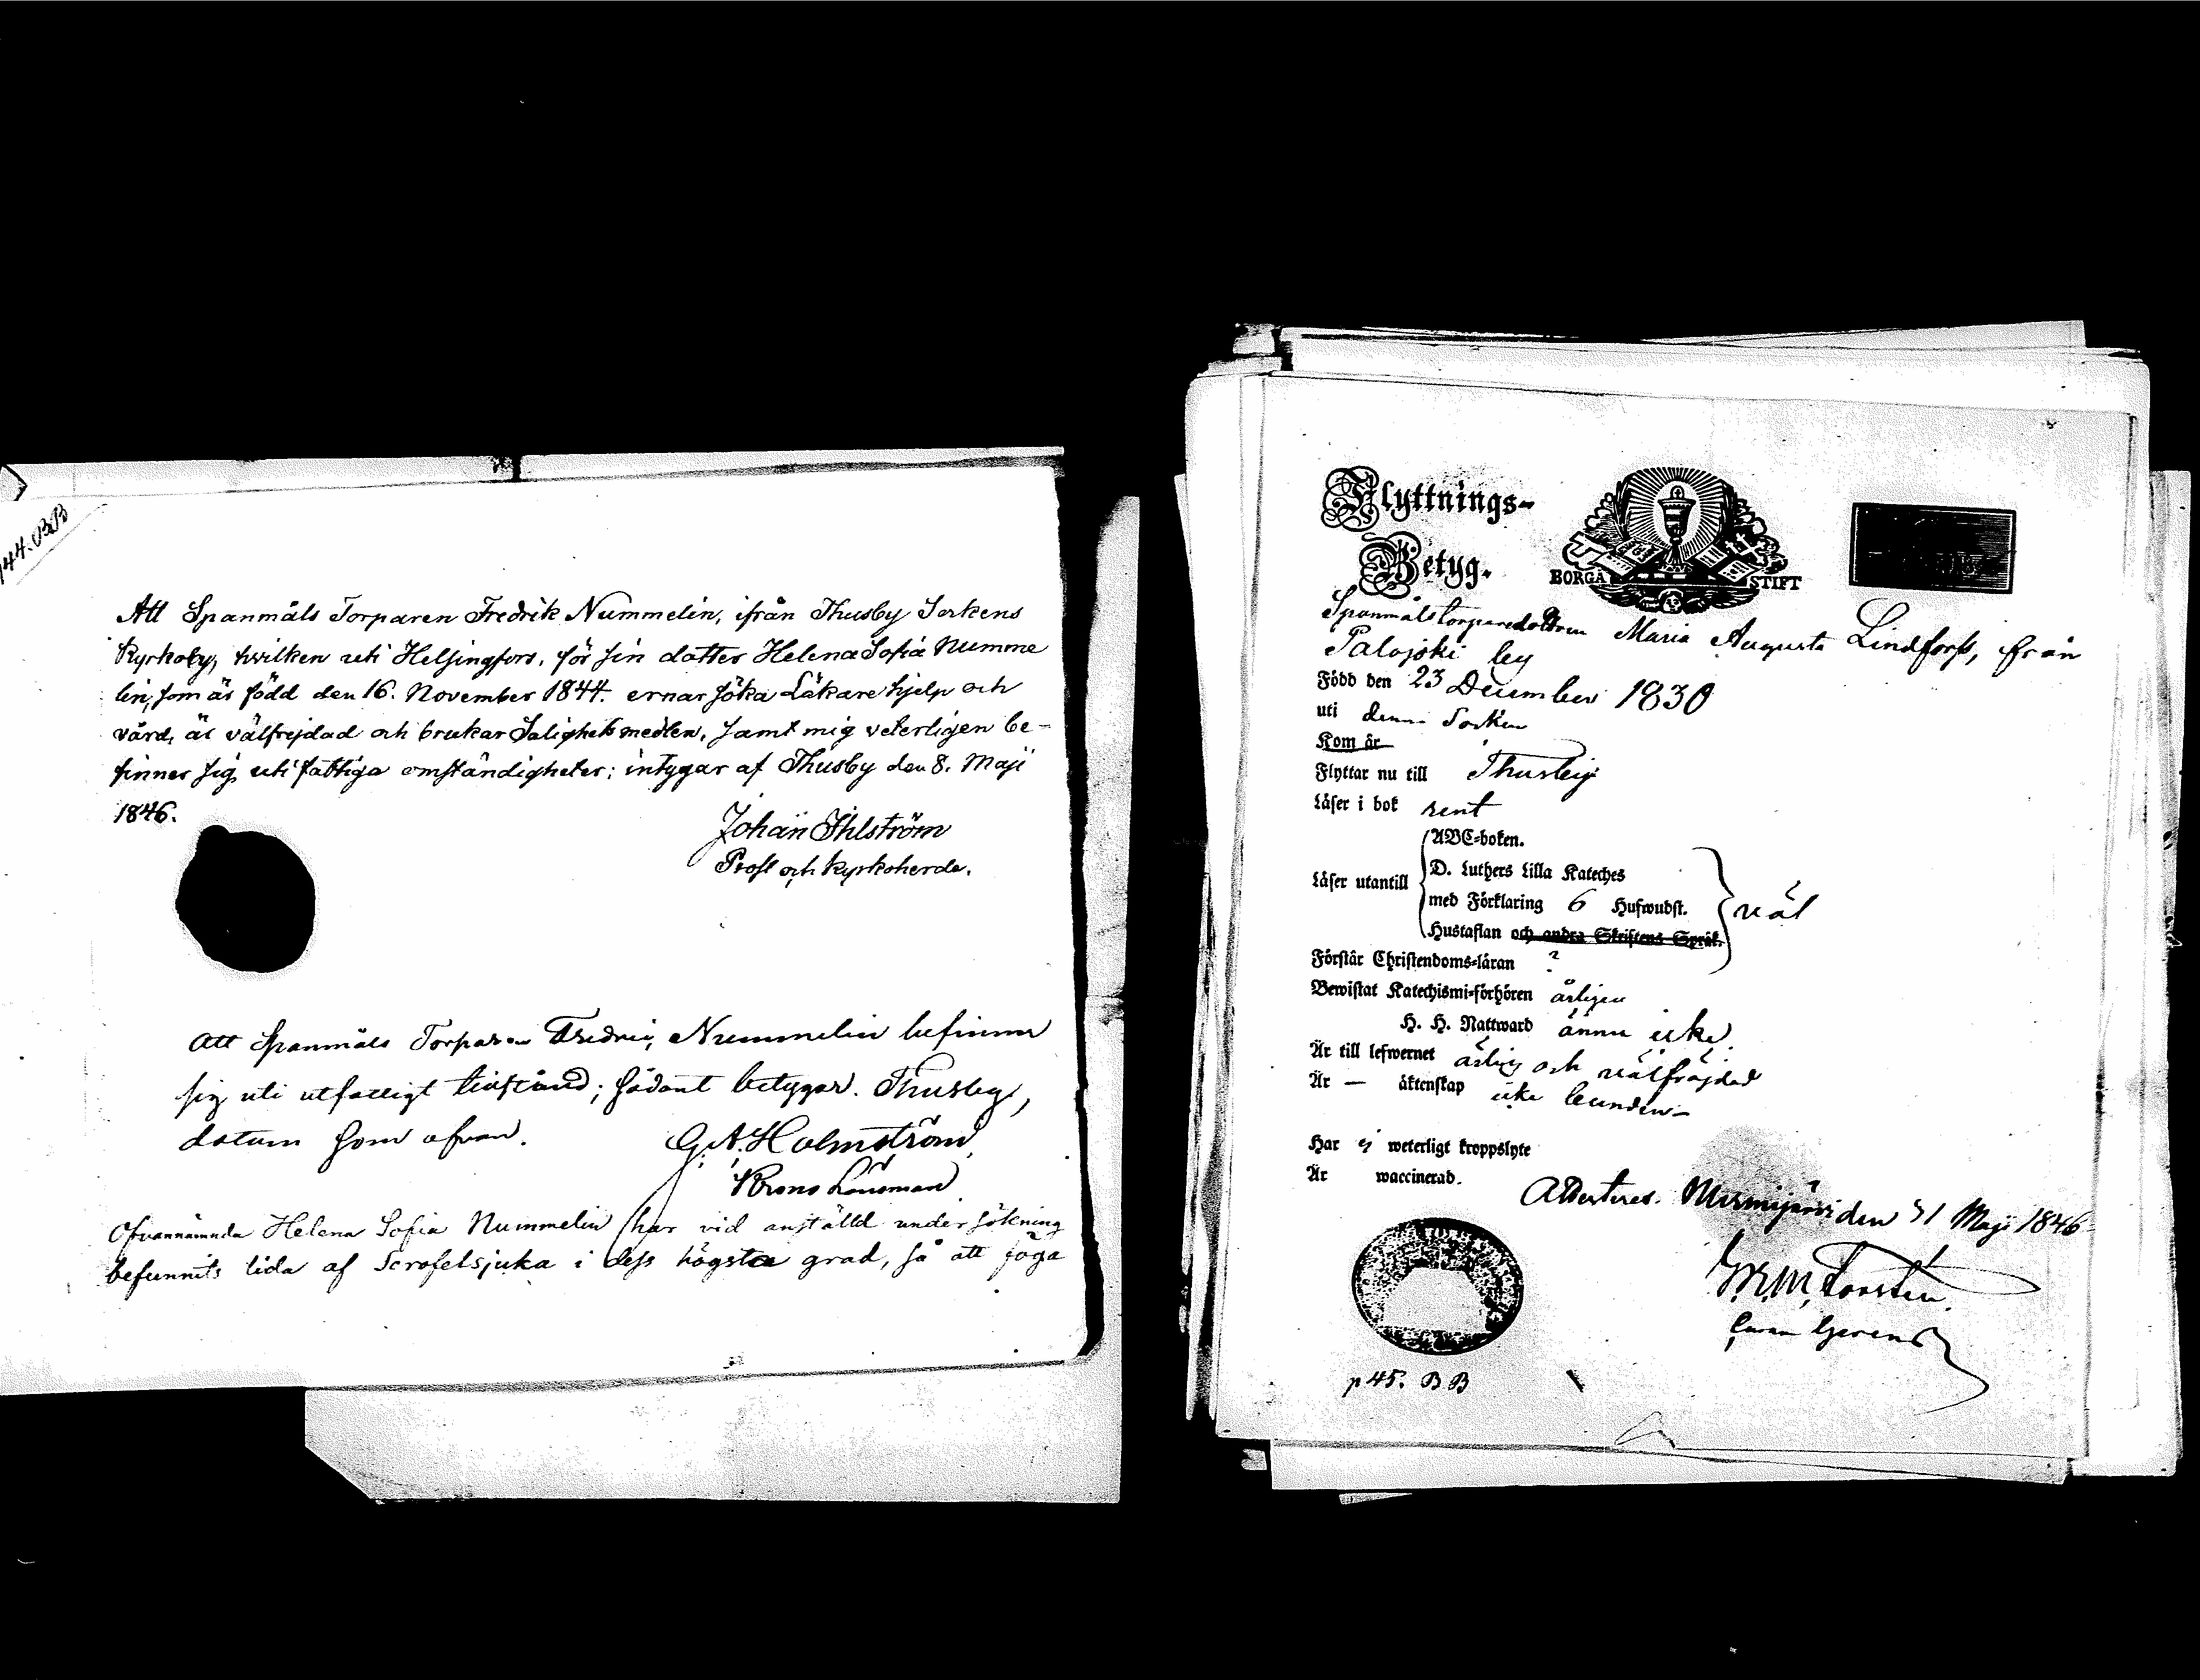 144. BB
Att Spanmåls Torparen Fredrik Nummelin, ifrån Thusby Sorkens
Kyrkoby, hvilken uti Helsingfors, för sin dotter Helena Sofia Numme
lin, som är född den 16. November 1844. ernar söka Läkare hjelp och
vård, är välfrejdad och brukar Salighets medlen, samt mig veterligen be-
finner sig uti fattiga omständigheter; intygar af Thusby den 8. Maji
1846.
Johan Ihlström
Prost och Kyrkoherde.
Att Spanmåls Torparen Fredric Nummelin befinner
sig uti utfattigt tillstånd; sådant betygar. Thusby,
datum som ofvan.
G. A. Holmström
Krono Länsman
Ofvannämnda Helena Sofia Nummelin har vid anställd undersökning
befunnits lida af Scrofelsjuka i dess högsta grad, så att föga
Flyttnings-
Betyg.
BORGÅ STIFT
Spanmålstorparedottren Maria Augusta Lindforss, från
Palojoki by
Född den 23 December 1830
uti denna Socken
Kom år
Flyttar nu till Thusby
Läser i bok rent
ABC-boken.
D. Luthers Lilla Kateches
Läser utantill
med Förklaring 6 Hufwudst.
väl
Hustaflan och andra Skriftens Språk.
Förstår Christendoms-läran ?
Bewistat Katechismi-förhören årligen
H. H. Nattward ännu icke
Är till lefwernet ärlig och välfräjdad
Är — äktenskap icke bunden
Har ej weterligt kroppslyte
Är waccinerad.
Attesteras. Nurmijärvi den 31 Maji 1846
p 45. BB